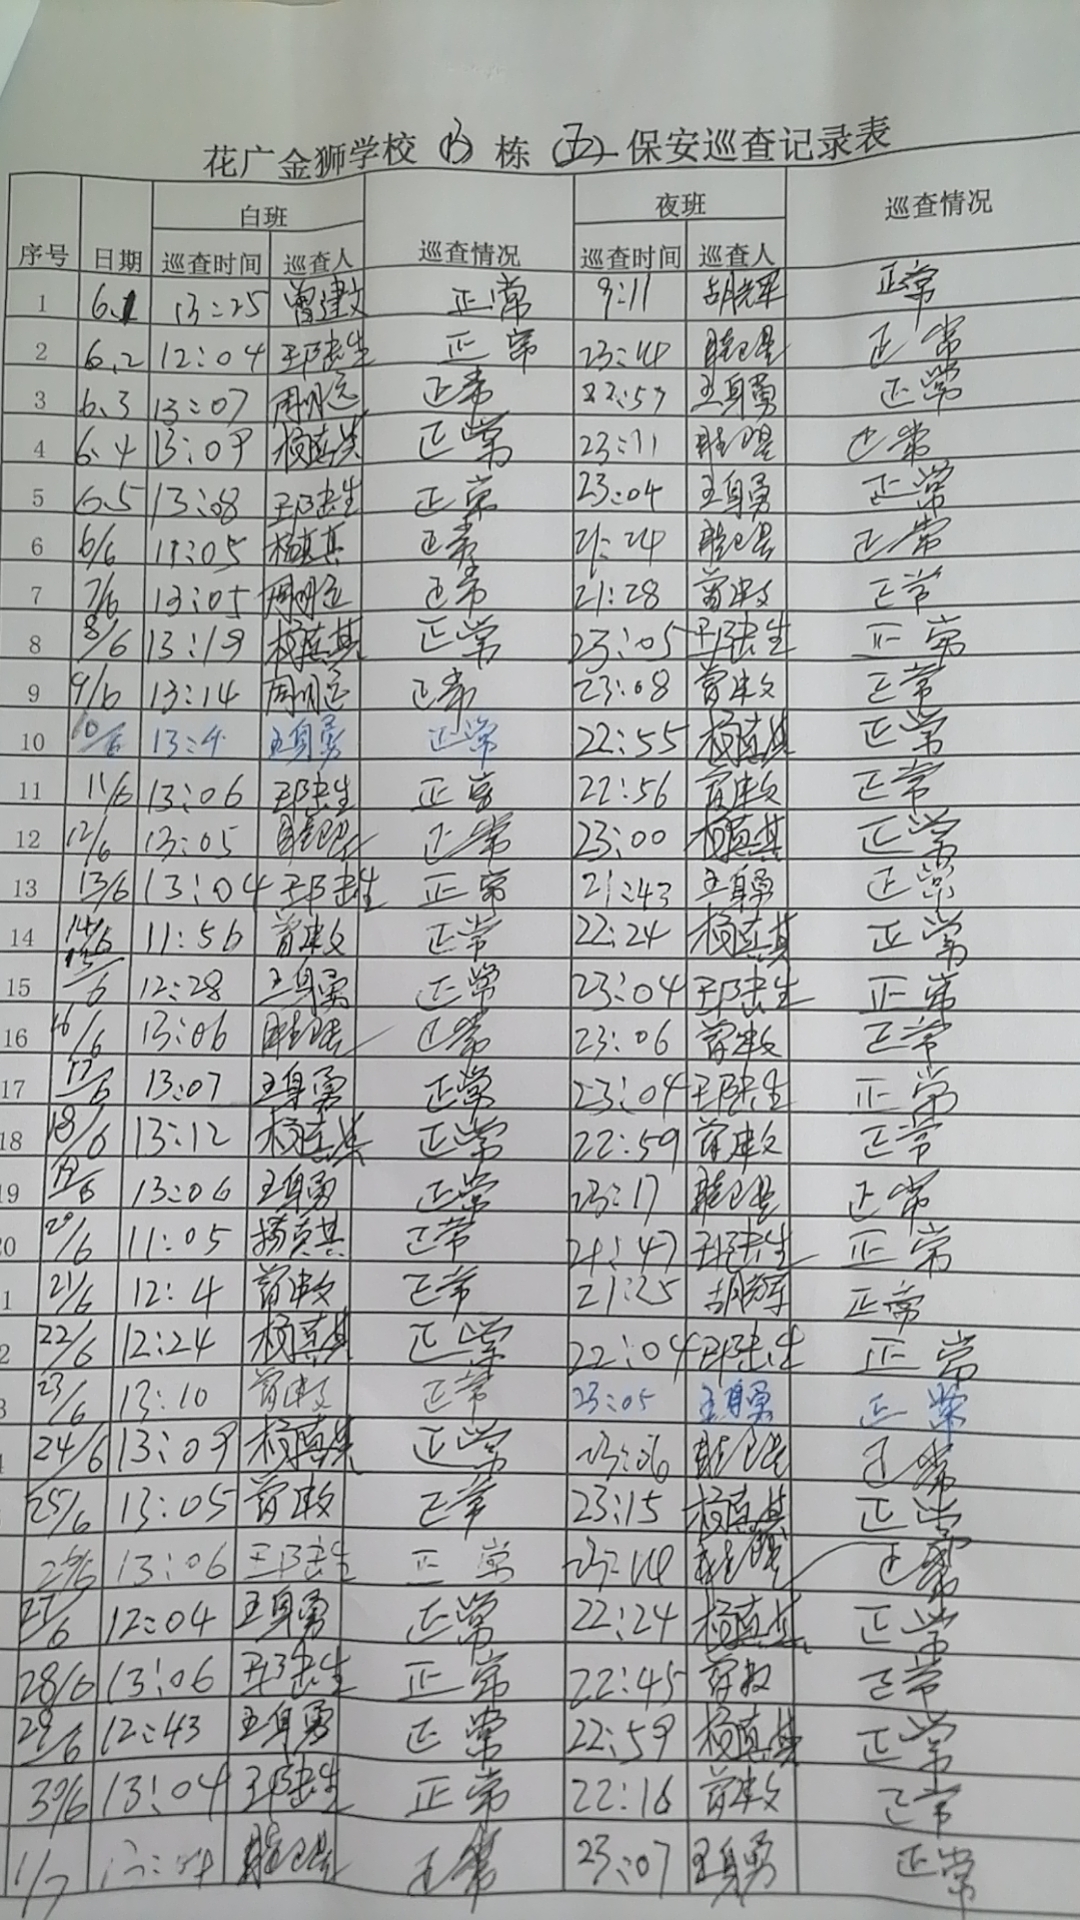 花广金狮学校 栋(五)保安巡查记录表
序号 日期 白班 巡查情况 夜班 巡查情况
巡查时间 巡查人 巡查时间 巡查人
1 6.1 13:25 曾建文 正常 9:11 正常
2 6.2 12:04 正常 23:44 正常
3 6.3 13:07 周明远 正常 22:57 王身勇 正常
4 6.4 13:09 杨真其 正常 23:11 正常
5 6.5 13:08 正常 23:04 王身勇 正常
6 6/6 11:05 杨真其 正常 21:24 正常
7 7/6 13:05 周明远 正常 21:28 曾建文 正常
8 8/6 13:19 杨真其 正常 23:05 正常
9 9/6 13:14 周明远 正常 23:08 曾建文 正常
10 10/6 13:4 王身勇 正常 22:55 杨真其 正常
11 11/6 13:06 正常 22:56 曾建文 正常
12 12/6 13:05 正常 23:00 杨真其 正常
13 13/6 13:04 正常 21:43 王身勇 正常
14 14/6 11:56 曾建文 正常 22:24 杨真其 正常
15 15/6 12:28 王身勇 正常 23:04 正常
16 16/6 13:06 正常 23:06 曾建文 正常
17 17/6 13:07 王身勇 正常 23:04 正常
18 18/6 13:12 杨真其 正常 22:59 曾建文 正常
19 19/6 13:06 王身勇 正常 23:17 正常
20 20/6 11:05 杨真其 正常 21:47 正常
1 21/6 12:4 曾建文 正常 21:25 正常
2 22/6 12:24 杨真其 正常 22:04 正常
3 23/6 13:10 曾建文 正常 23:05 王身勇 正常
24/6 13:09 杨真其 正常 23:06 正常
25/6 13:05 曾建文 正常 23:15 杨真其 正常
26/6 13:06 正常 23:44 正常
27/6 12:04 王身勇 正常 22:24 杨真其 正常
28/6 13:06 正常 22:45 正常
29/6 12:43 王身勇 正常 22:59 杨真其 正常
30/6 13:04 正常 22:16 曾建文 正常
1/7 正常 23:07 王身勇 正常